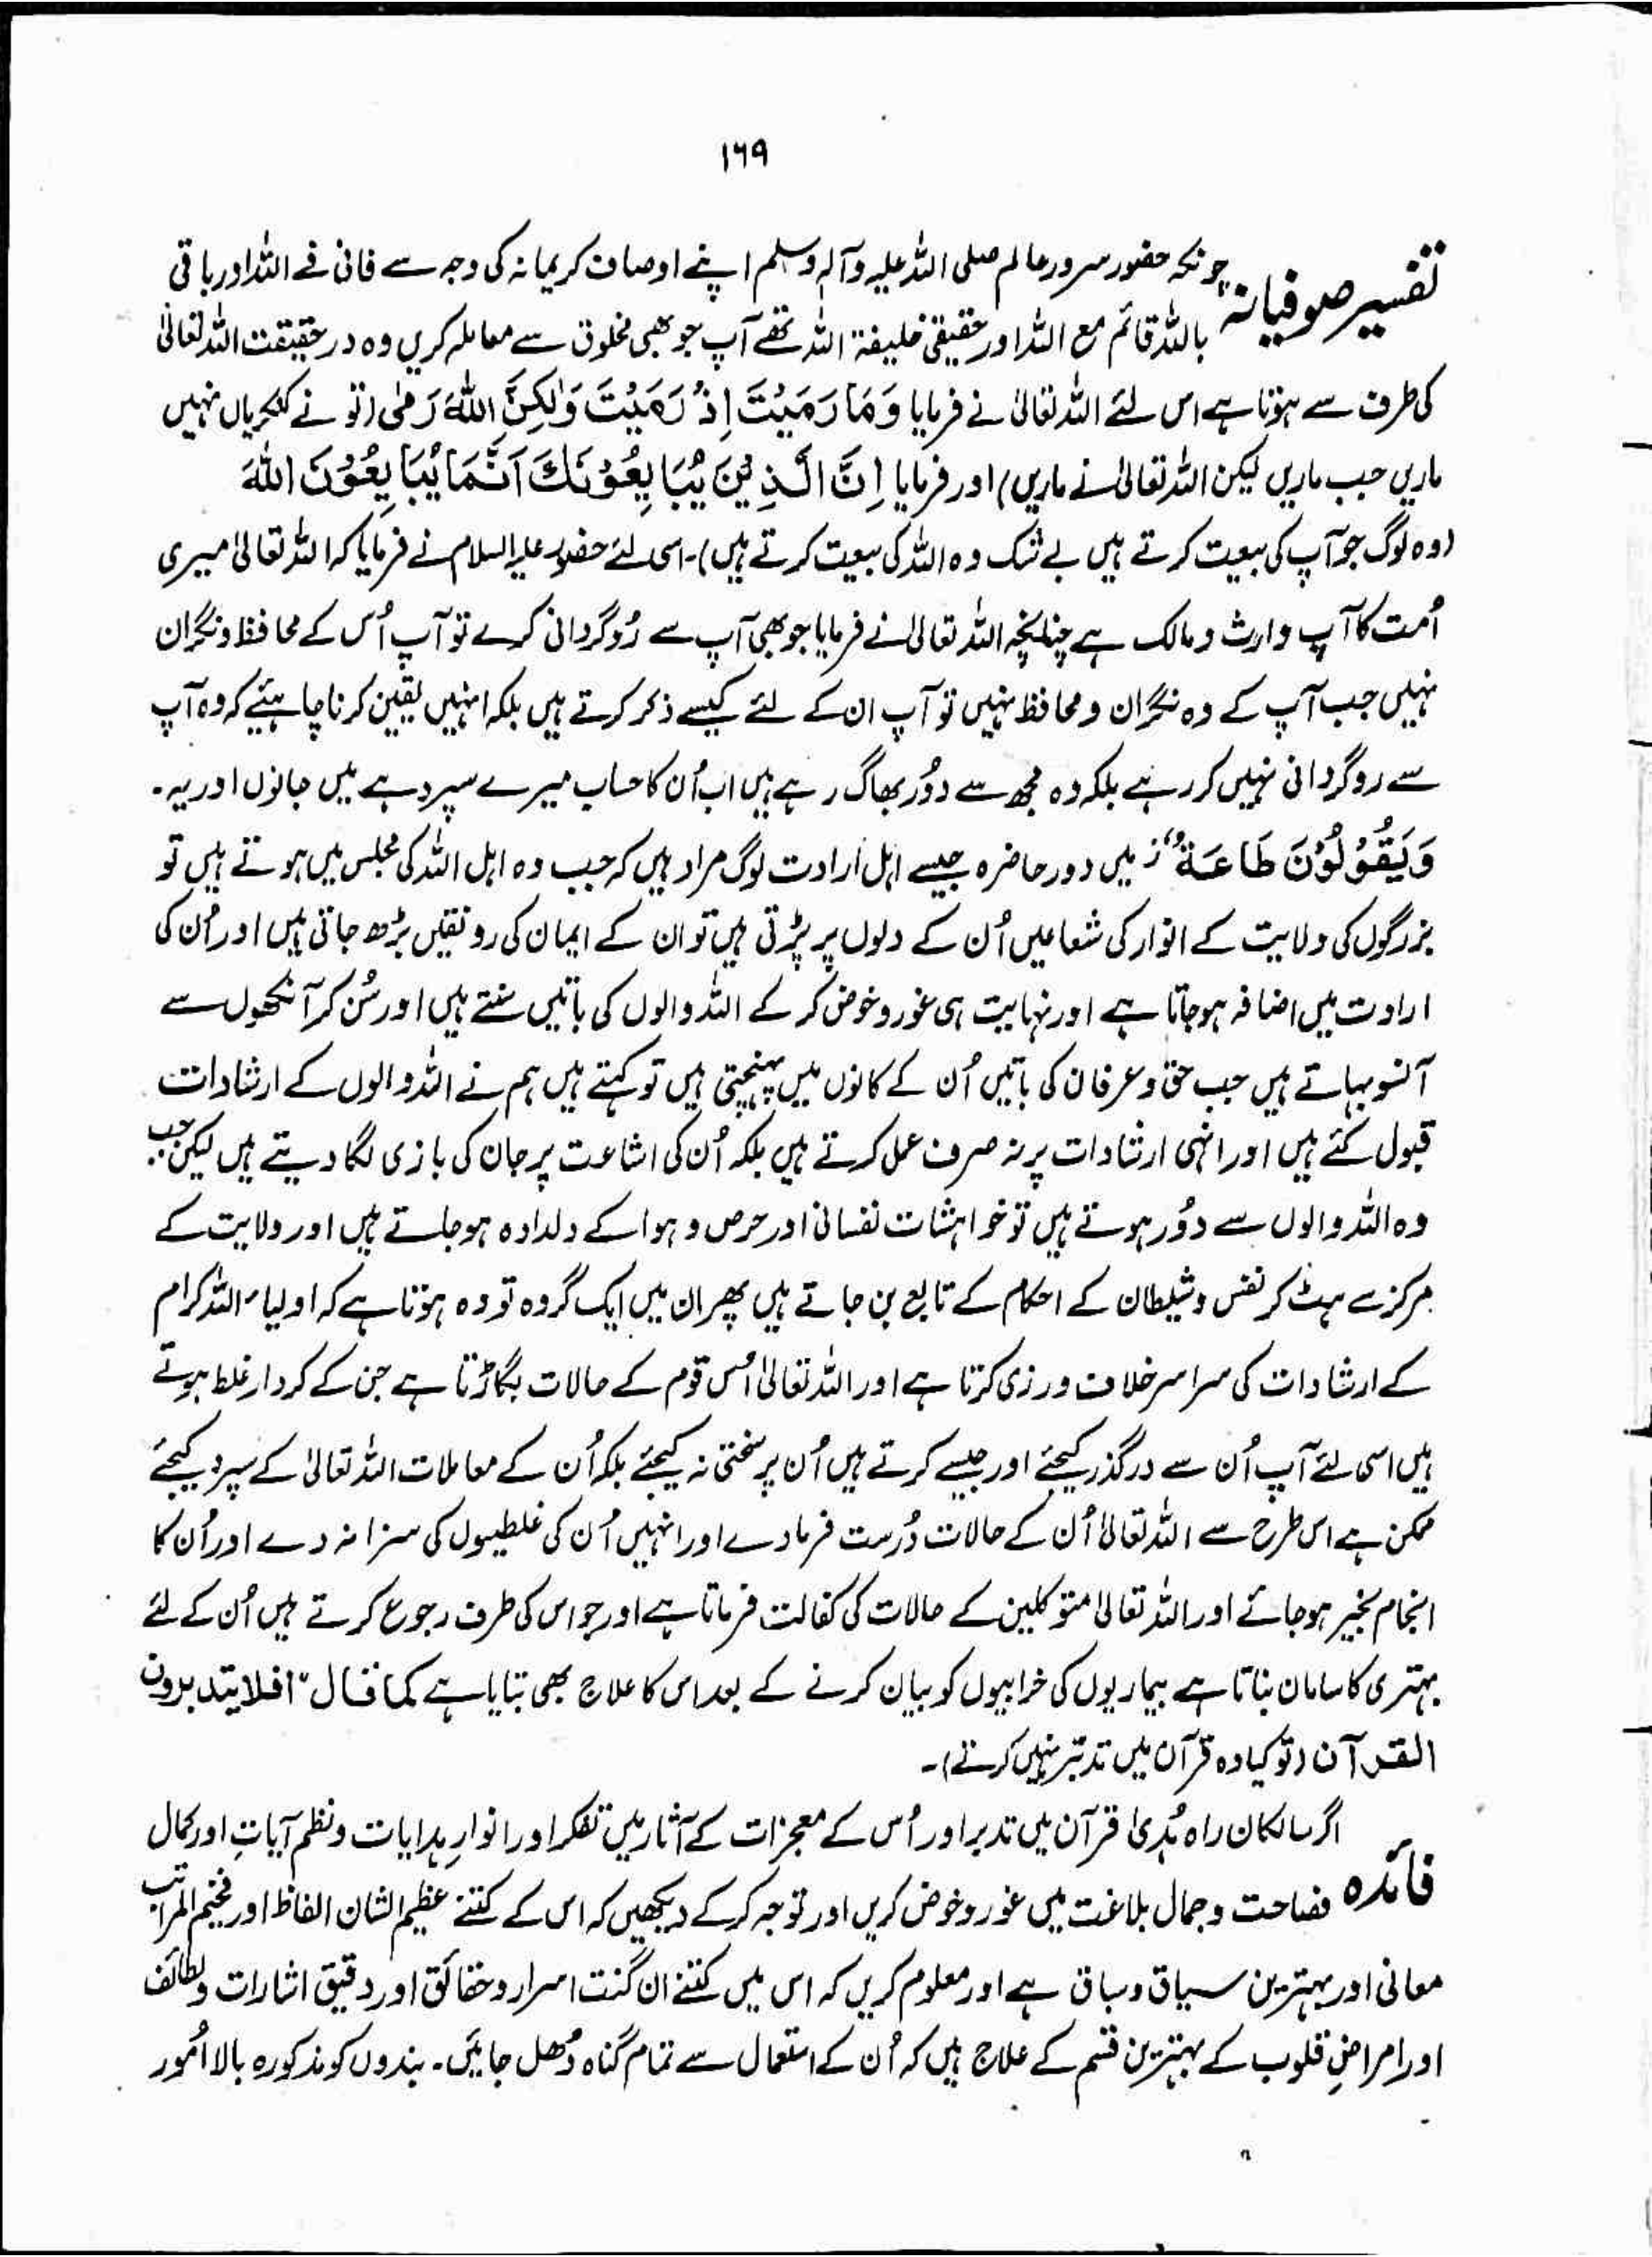 ۱۶۹
تفسیر صوفیانہ چونکہ حضور سرور عالم صلی اللہ علیہ وآلہٖ وسلم اپنے اوصاف کریمانہ کی وجہ سے فانی فے اللہ اور باقی
باللہ قائم مع اللہ اور حقیقی خلیفۃ اللہ تھے آپ جو بھی مخلوق سے معاملہ کریں وہ در حقیقت اللہ تعالیٰ
کی طرف سے ہوتا ہے اس لئے اللہ تعالیٰ نے فرمایا وَمَا رَمَيْتَ اِذْ رَمَيْتَ وَلٰكِنَّ اللّٰهَ رَمٰى (تو نے کنکریاں نہیں
ماریں جب ماریں لیکن اللہ تعالیٰ نے ماریں) اور فرمایا اِنَّ الَّذِيْنَ يُبَايِعُوْنَكَ اَنَّمَا يُبَايِعُوْنَ اللّٰهَ
(وہ لوگ جو آپ کی بیعت کرتے ہیں بے شک وہ اللہ کی بیعت کرتے ہیں)۔ اسی لئے حضور علیہ السلام نے فرمایا کہ اللہ تعالیٰ میری
اُمت کا آپ وارث و مالک ہے چنانچہ اللہ تعالیٰ نے فرمایا جو بھی آپ سے رُوگردانی کرے تو آپ اُس کے محافظ و نگران
نہیں جب آپ کے وہ نگران و محافظ نہیں تو آپ ان کے لئے کیسے ذکر کرتے ہیں بلکہ انہیں یقین کرنا چاہئیے کہ وہ آپ
سے روگردانی نہیں کر رہے بلکہ وہ مجھ سے دُور بھاگ رہے ہیں اب اُن کا حساب میرے سپرد ہے میں جانوں اور یہ۔
وَيَقُوْلُوْنَ طَاعَةٌ ز میں دور حاضرہ جیسے اہل ارادت لوگ مراد ہیں کہ جب وہ اہل اللہ کی مجلس میں ہوتے ہیں تو
بزرگوں کی ولایت کے انوار کی شعاعیں اُن کے دلوں پر پڑتی ہیں تو ان کے ایمان کی رونقیں بڑھ جاتی ہیں اور اُن کی
ارادت میں اضافہ ہو جاتا ہے اور نہایت ہی غور و خوض کر کے اللہ والوں کی باتیں سنتے ہیں اور سُن کر آنکھوں سے
آنسو بہاتے ہیں جب حق و عرفان کی باتیں اُن کے کانوں میں پہنچتی ہیں تو کہتے ہیں ہم نے اللہ والوں کے ارشادات
قبول کئے ہیں اور انہی ارشادات پر نہ صرف عمل کرتے ہیں بلکہ اُن کی اشاعت پر جان کی بازی لگا دیتے ہیں لیکن جب
وہ اللہ والوں سے دُور ہوتے ہیں تو خواہشات نفسانی اور حرص و ہوا کے دلدادہ ہو جاتے ہیں اور ولایت کے
مرکز سے ہٹ کر نفس و شیطان کے احکام کے تابع بن جاتے ہیں پھر ان میں ایک گروہ تو وہ ہوتا ہے کہ اولیاء اللہ کرام
کے ارشادات کی سراسر خلاف ورزی کرتا ہے اور اللہ تعالیٰ اُس قوم کے حالات بگاڑتا ہے جن کے کردار غلط ہوتے
ہیں اسی لئے آپ اُن سے درگذر کیجئے اور جیسے کرتے ہیں اُن پر سختی نہ کیجئے بلکہ اُن کے معاملات اللہ تعالیٰ کے سپرد کیجئے
ممکن ہے اس طرح سے اللہ تعالیٰ اُن کے حالات دُرست فرمادے اور انہیں اُن کی غلطیوں کی سزا نہ دے اور اُن کا
انجام بخیر ہو جائے اور اللہ تعالیٰ متوکلین کے حالات کی کفالت فرماتا ہے اور جو اس کی طرف رجوع کرتے ہیں اُن کے لئے
بہتری کا سامان بناتا ہے بیماریوں کی خرابیوں کو بیان کرنے کے بعد اس کا علاج بھی بتایا ہے کما قال "افلا یتدبرون
القرآن (تو کیا وہ قرآن میں تدبّر نہیں کرتے)۔
فائدہ اگر سالکان راہ ہُدیٰ قرآن میں تدبر اور اُس کے معجزات کے آثار میں تفکر اور انوارِ ہدایات و نظم آیاتِ اور کمال
فصاحت و جمال بلاغت میں غور و خوض کریں اور توجہ کر کے دیکھیں کہ اس کے کتنے عظیم الشان الفاظ اور فخیم المراتب
معانی اور بہترین سیاق و سباق ہے اور معلوم کریں کہ اس میں کتنے ان گنت اسرار و حقائق اور دقیق اشارات و لطائف
اور امراضِ قلوب کے بہترین قسم کے علاج ہیں کہ اُن کے استعمال سے تمام گناہ دُھل جائیں۔ بندوں کو مذکورہ بالا اُمور